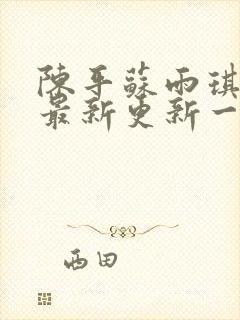 陳平蘇雨琪
最新更新一
西田